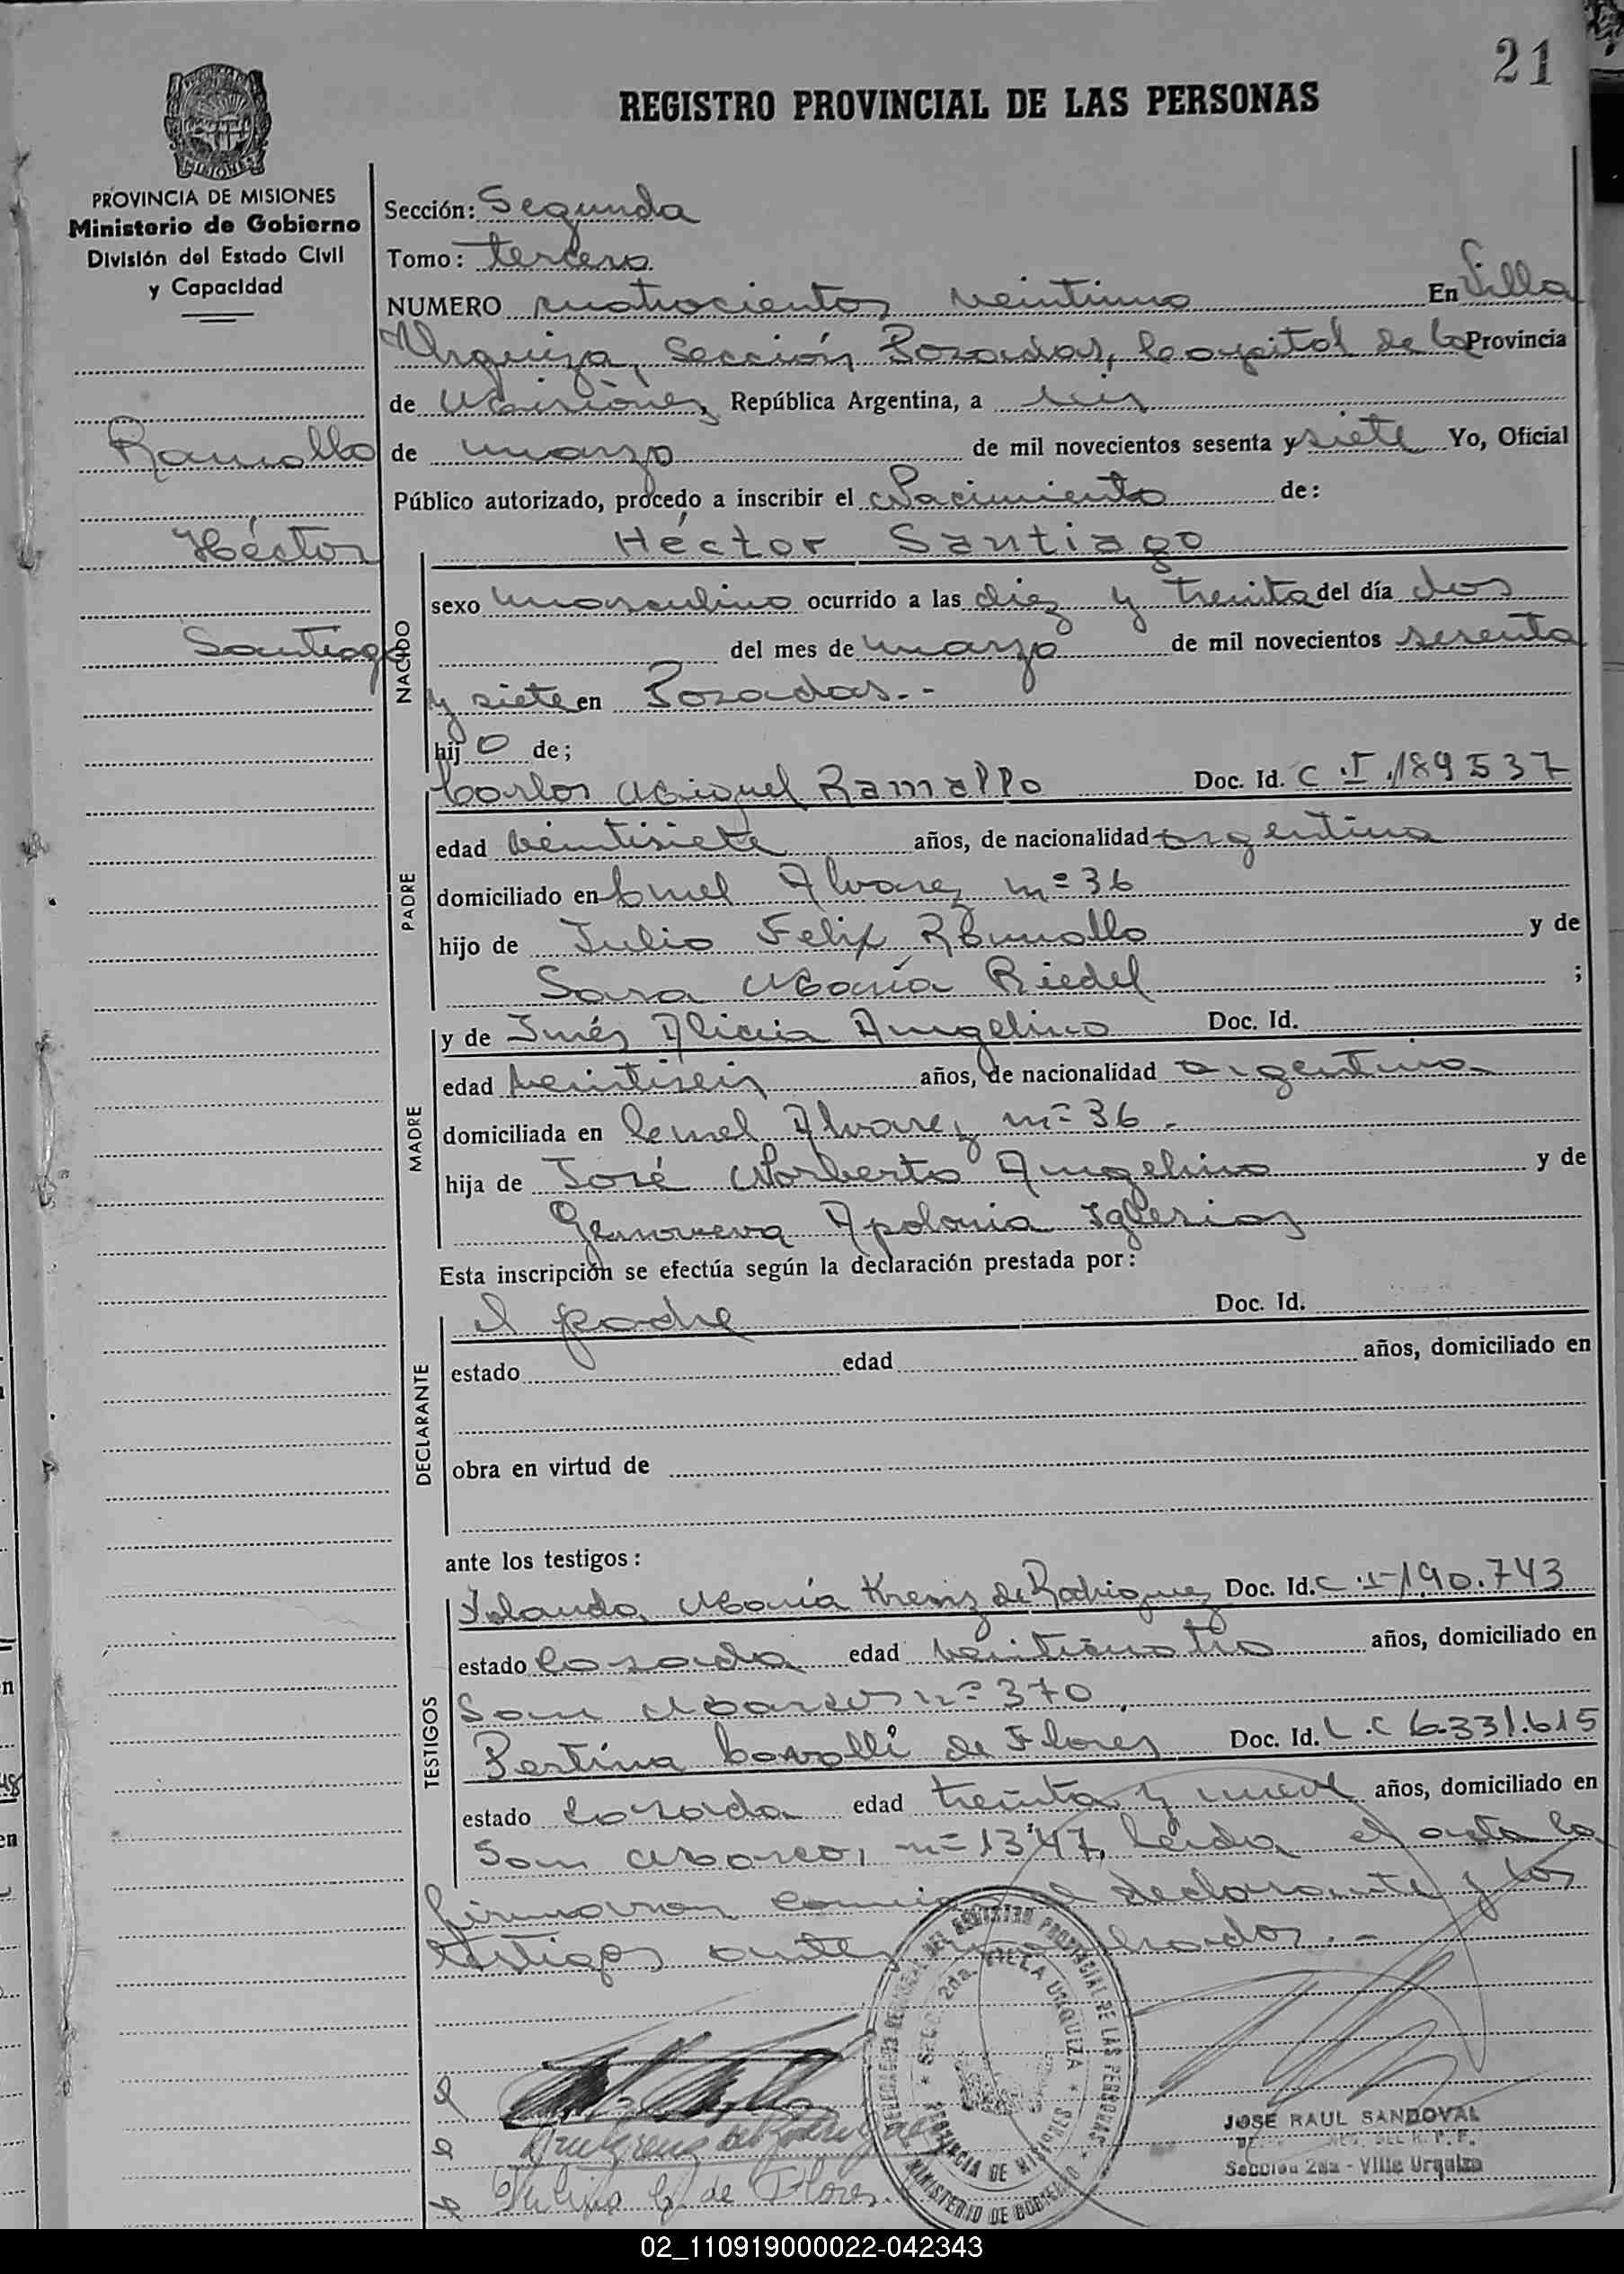 21
REGISTRO PROVINCIAL DE LAS PERSONAS
MISIONES
PROVINCIA DE MISIONES
Ministerio de Gobierno
División del Estado Civil
y Capacidad
Ramallo
Héctor
Santiago
Sección: Segunda
Tomo: tercero
NUMERO cuatrocientos veintiuno En Villa
Urquiza, Sección Posadas, Capital de la Provincia
de Misiones, República Argentina, a seis
de marzo de mil novecientos sesenta y siete Yo, Oficial
Público autorizado, procedo a inscribir el Nacimiento de:
NACIDO
Héctor Santiago
sexo masculino ocurrido a las diez y treinta del día dos
del mes de marzo de mil novecientos sesenta
y siete en Posadas.--
hijo de;
PADRE
Carlos Miguel Ramallo Doc. Id. C.I. 189537
edad veintisiete años, de nacionalidad argentina
domiciliado en Cnel Alvarez nº 36
hijo de Julio Felix Ramallo y de
Sara María Riedel ;
MADRE
y de Inés Alicia Angelino Doc. Id.
edad veintiseis años, de nacionalidad argentina
domiciliada en Cnel Alvarez nº 36.
hija de José Norberto Angelino y de
Genoveva Apolonia Iglesias
Esta inscripción se efectúa según la declaración prestada por:
DECLARANTE
el padre Doc. Id.
estado edad años, domiciliado en
obra en virtud de
ante los testigos:
TESTIGOS
Yolanda María Krenz de Rodriguez Doc. Id. C.I 190.743
estado Casada edad veinticuatro años, domiciliado en
San Marcos nº 370
de Flores Doc. Id. L.C 6.331.615
estado Casada edad treinta y nueve años, domiciliado en
San Marcos nº 1347, leída el acta la
firmaron conmigo el declarante y los
testigos antes nombrados.-
SECC. 2da. VILLA URQUIZA
PROVINCIA DE MISIONES
MINISTERIO DE GOBIERNO
REGISTRO PROVINCIAL DE LAS PERSONAS
de Flores
JOSE RAUL SANDOVAL
Sección 2da - Villa Urquiza
02_110919000022-042343